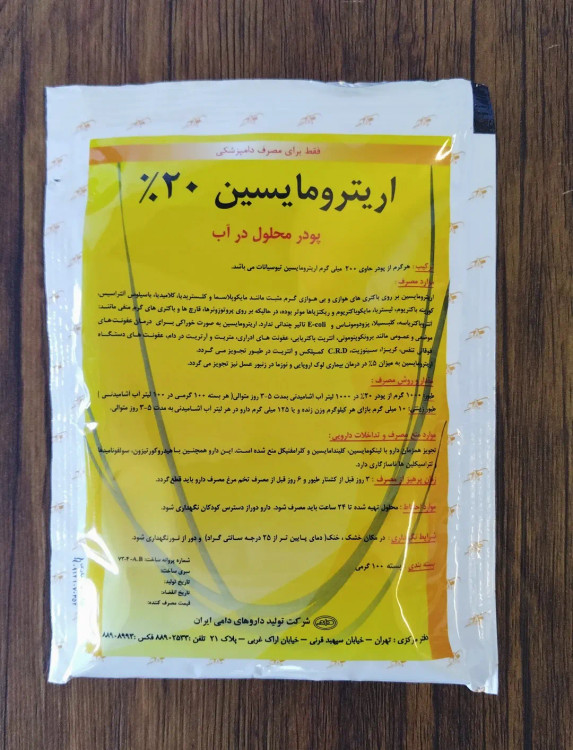 فقط برای مصرف دامپزشکی
اریترومایسین ۲۰٪
پودر محلول در آب
ترکیب : هرگرم از پودر حاوی ۲۰۰ میلی گرم اریترومایسین تیوسیانات می باشد.
موارد مصرف :
اریترومایسین بر روی باکتری های هوازی و بی هوازی گرم مثبت مانند مایکوپلاسما و کلستریدیا، کلامیدیا، باسیلوس آنتراسیس،
کورینه باکتریوم، لیستریا، مایکوباکتریوم و ریکتزیاها موثر بوده، در حالیکه بر روی پروتوزوئرها، قارچ ها و باکتری های گرم منفی مانند:
انتروباکتریاسه، کلبسیلا، پزودوموناس و E-coli تاثیر چندانی ندارد. اریترومایسین به صورت خوراکی برای درمان عفونت‌های
موضعی و عمومی مانند برونکوپنومونی، آنتریت باکتریایی، عفونت های ادراری، متریت و آرتریت در دام، عفونت های دستگاه
فوقانی تنفس، کریزا، سینوزیت، C.R.D کمپلکس و آنتریت در طیور تجویز می گردد.
اریترومایسین به میزان ۵٪ در درمان بیماری لوک اروپایی و نوزما در زنبور عسل نیز تجویز می گردد.
مقدار و روش مصرف :
طیور: ۱۰۰۰ گرم از پودر ۲۰٪ در ۱۰۰۰ لیتر آب آشامیدنی بمدت ۵-۳ روز متوالی( هر بسته ۱۰۰ گرمی در ۱۰۰ لیتر آب آشامیدنی )
طیور زینتی: ۱۰ میلی گرم بازای هر کیلوگرم وزن زنده و یا ۱۲۵ میلی گرم دارو در هر لیتر آب آشامیدنی به مدت ۵-۳ روز متوالی.
موارد منع مصرف و تداخلات دارویی:
تجویز همزمان دارو با لینکومایسین، کلیندامایسین و کلرامفنیکل منع شده است. این دارو همچنین با هیدروکورتیزون، سولفونامیدها
و تتراسیکلین ها ناسازگاری دارد.
زمان پرهیز از مصرف : ۳ روز قبل از کشتار طیور و ۶ روز قبل از مصرف تخم مرغ مصرف دارو باید قطع گردد.
موارد احتیاط : محلول تهیه شده تا ۲۴ ساعت باید مصرف شود. دارو دور از دسترس کودکان نگهداری شود.
شرایط نگهداری : در مکان خشک ، خنک( دمای پایین تر از ۲۵ درجه سانتی گراد) و دور از نور نگهداری شود.
بسته بندی : بسته ۱۰۰ گرمی
شماره پروانه ساخت: ۷۳-۴۰۸.B
سری ساخت:
تاریخ تولید:
تاریخ انقضاء:
قیمت مصرف کننده:
شرکت تولید داروهای دامی ایران
دفتر مرکزی : تهران – خیابان سپهبد قرنی – خیابان اراک غربی – پلاک ۲۱ تلفن :۸۸۹۰۲۵۳۳ فکس :۸۸۹۰۸۹۹۳